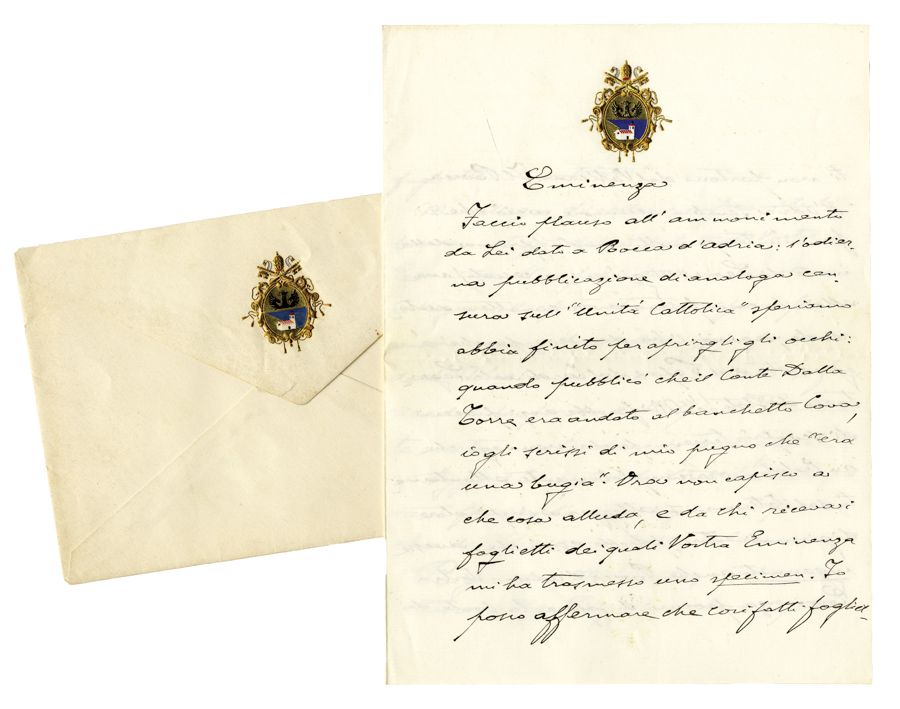 Eminenza
Faccio plauso all'ammonimento
da Lei dato a Rocca d'Adria: l'odier-
na pubblicazione di analoga cen-
sura sull'"Unità Cattolica" speriamo
abbia finito per aprirgli gli occhi:
quando pubblicò che il Conte Dalla
Torre era andato al banchetto Cova,
io gli scrissi di mio pugno che "era
una bugia". Ora non capisco a
che cosa alluda, e da chi riceva i
foglietti dei quali Vostra Eminenza
mi ha trasmesso uno specimen. Io
posso affermare che cosifatti foglie-